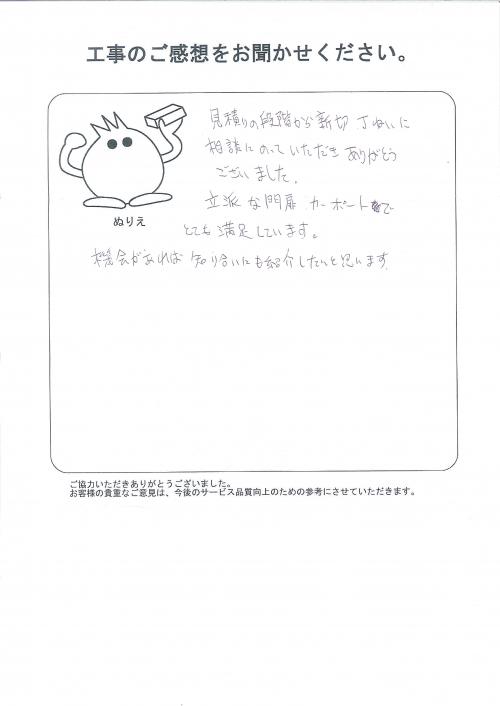 工事のご感想をお聞かせください。
見積りの段階から新切 丁ねいに
相談にのっていただき ありがとう
ございました。
立派な門扉 カーポートで
とても満足しています。
機会があれば 知り合いにも紹介したいと思います。
ぬりえ
ご協力いただきありがとうございました。
お客様の貴重なご意見は、今後のサービス品質向上のための参考にさせていただきます。